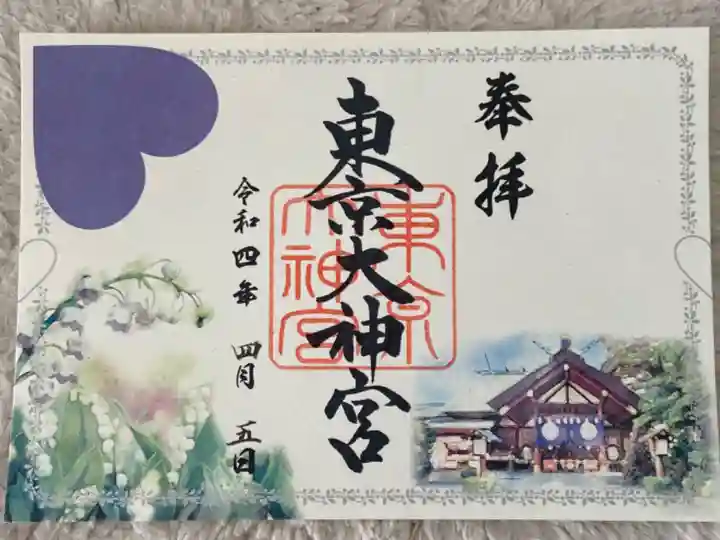 奉拝
東京大神宮
東京大神宮
令和四年 四月 五日